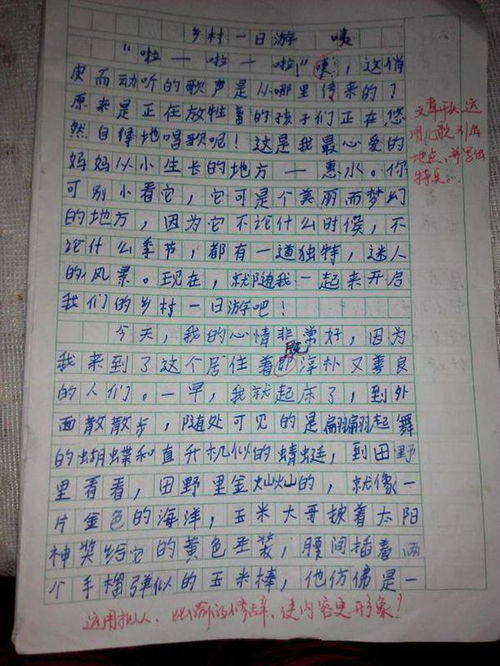 乡村一日游 咦
"啦—啦—啦!"咦,这俏
皮而动听的歌声是从哪里传来的?
原来是正在放牲着的孩子们正在悠
然自得地唱歌呢!这是我最心爱的
妈妈从小生长的地方—惠水。你
可别小看它,它可是个美丽而梦幻
的地方,因为它不论什么时候,不
论什么季节,都有一道独特,迷人
的风景。现在,就随我一起来开启
我们的乡村一日游吧!
今天,我的心情非常好,因为
我来到了这个居住着既淳朴又善良
的人们。一早,我就起床了,到外
面散散步,随处可见的是翩翩起舞
的蝴蝶和直升机似的蜻蜓,到田野
里看看,田野里金灿灿的,就像一
片金色的海洋,玉米大哥披着太阳
神奖给它的黄色圣装,腰间插着两
个手榴弹似的玉米棒,他仿佛是一
文章开头运
用儿歌引出
地点,并写出
特点。
运用拟人、比喻的修辞,使内容更形象!